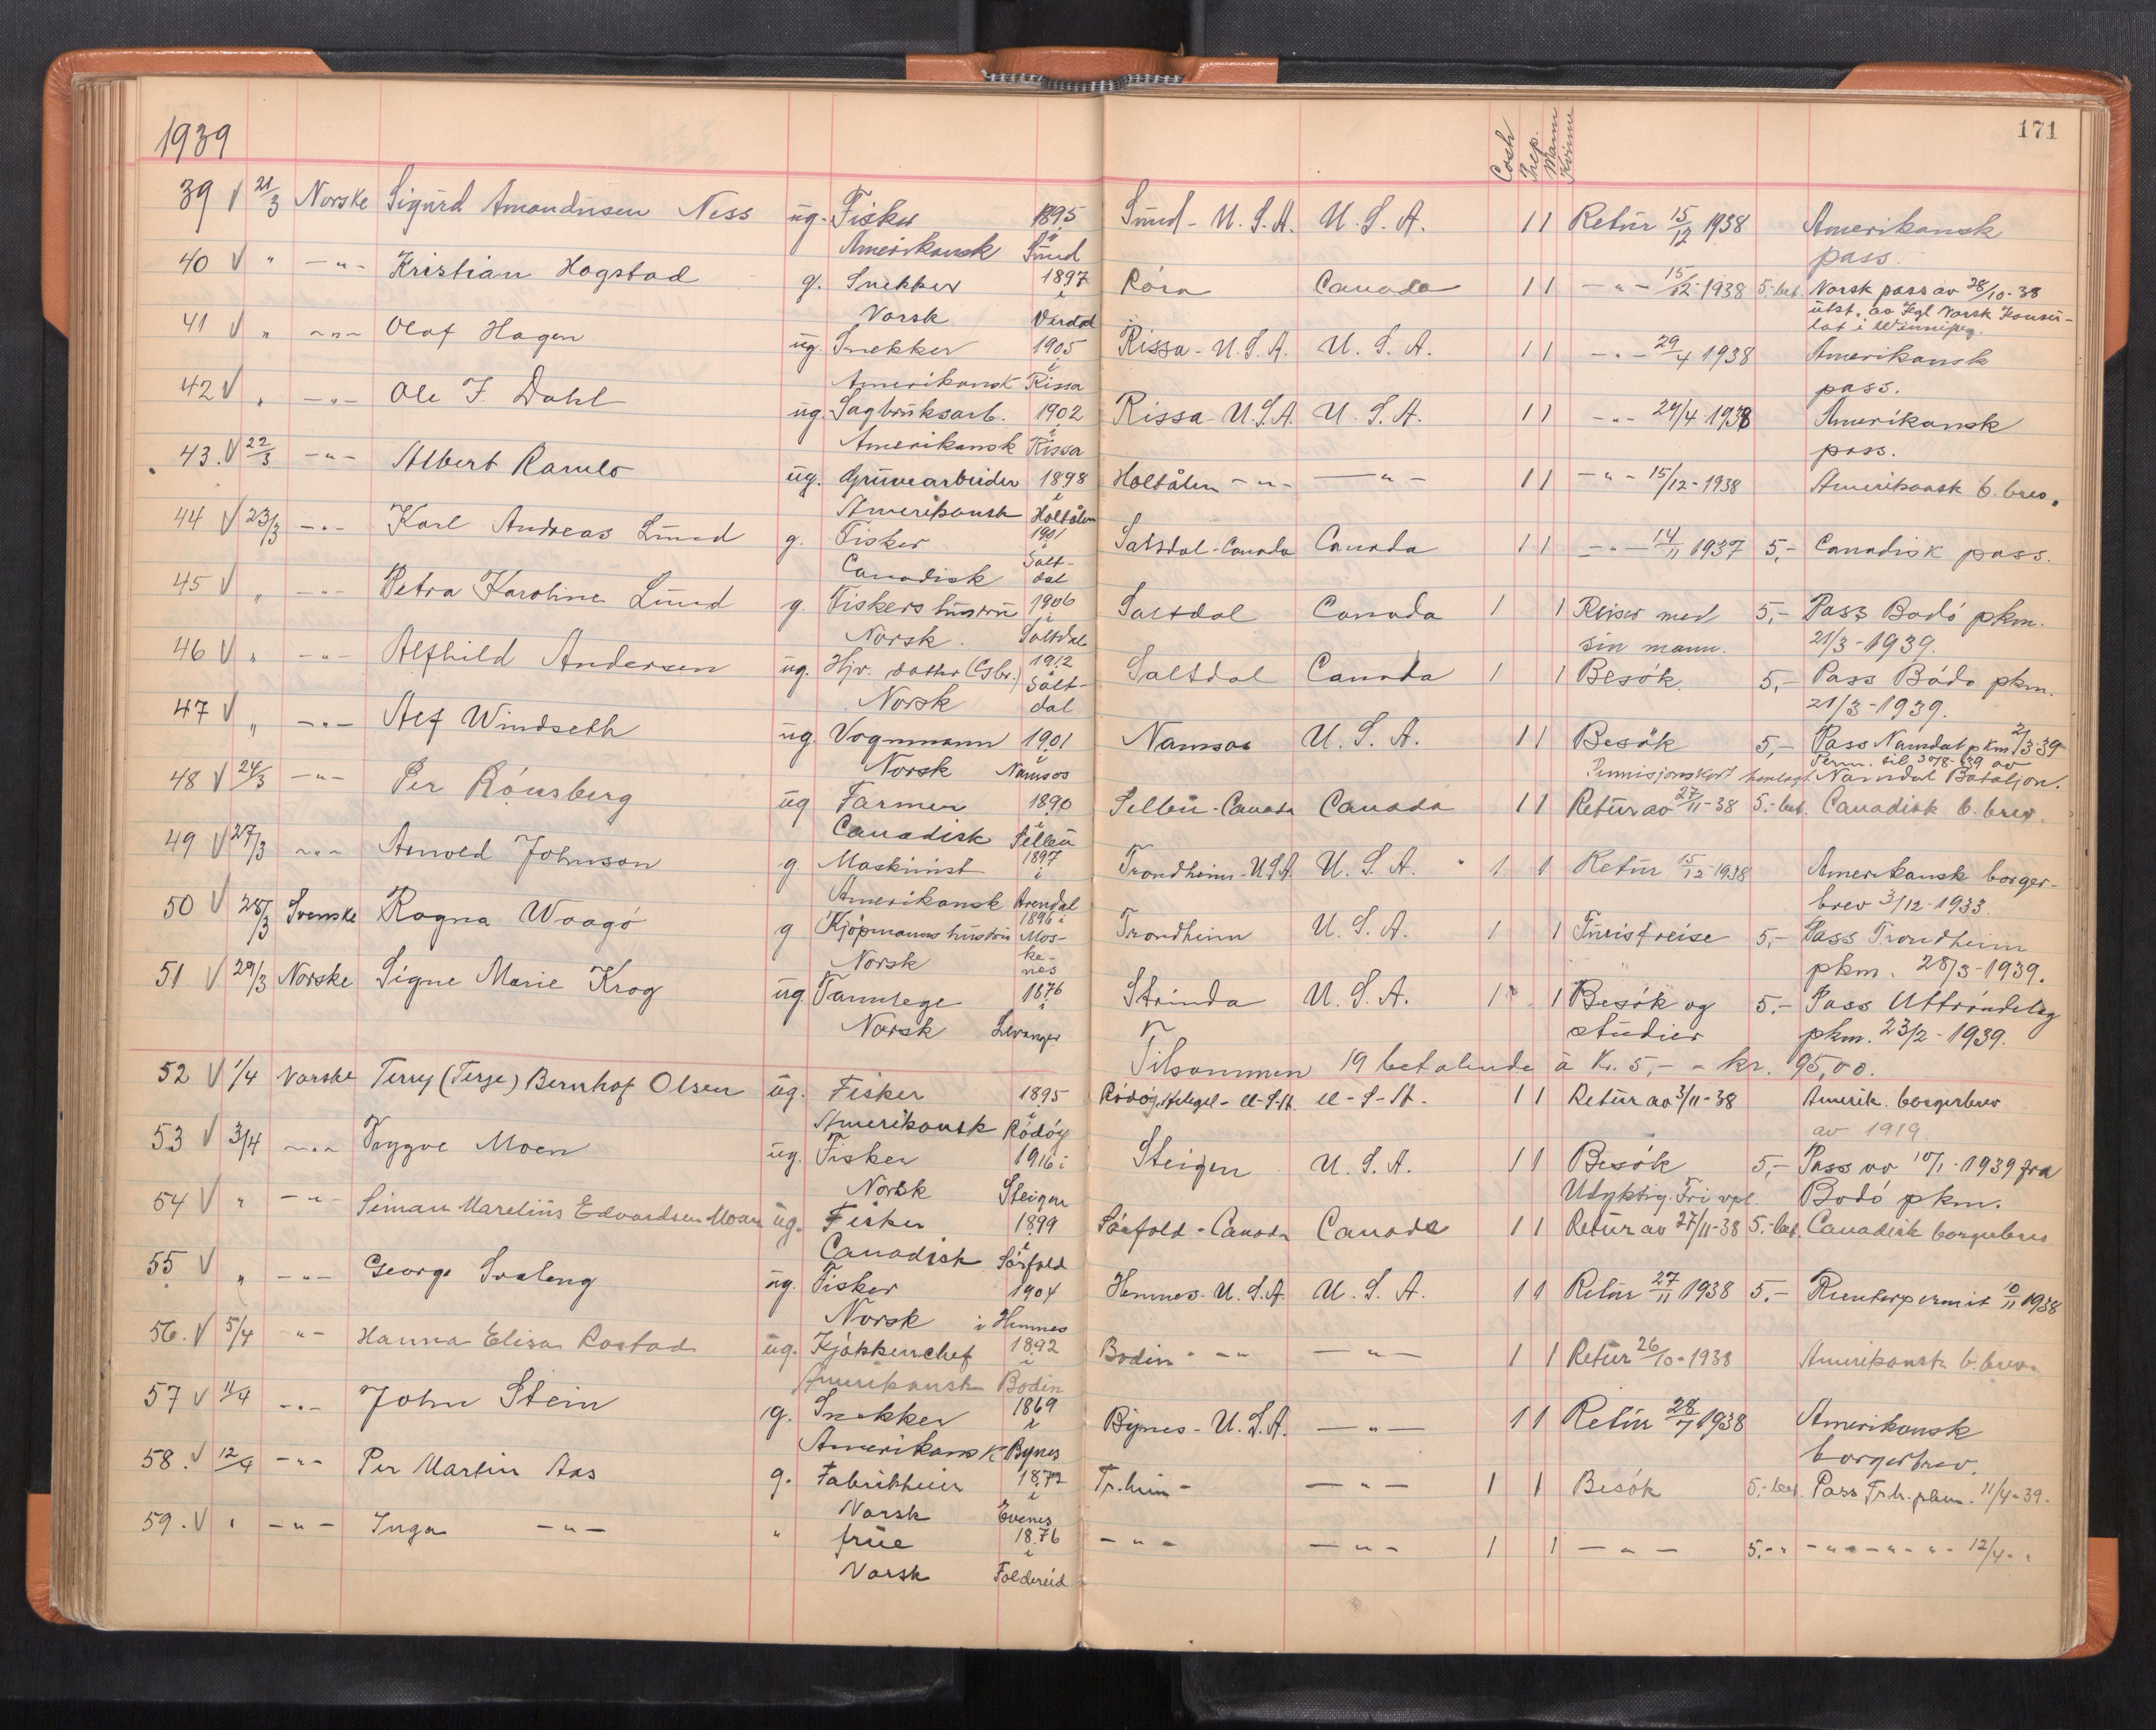 1939
171
Cash Prep. Mann Kvinne
39 V 21/3 Norske Sigurd Amandusen Ness ug. Fisker 1895 Smed - U.S.A. U.S.A. 1 1 Retur 15/12 1938 Amerikansk
Amerikansk pass.
40 V " - " - Kristian Hogstad g. Snekker 1897 Röra Canada 1 1 - " - 15/12-1938 5,- bet. Norsk pass av 28/10-38
Norsk i Verdal utst. av Kgl Norsk Konsu-
lat i Winnipeg.
41 V " - " - Olaf Hagen ug. Snekker 1905 Rissa - U.S.A. U.S.A. 1 1 - " - 29/4 1938 Amerikansk
Amerikansk i Rissa pass.
42 V " - " - Ole J. Dahl ug. Sagbruksarb. 1902 Rissa - U.S.A. U.S.A. 1 1 - " - 29/4 1938 Amerikansk
Amerikansk i Rissa pass.
43. V 22/3 - " - Albert Ramlo ug. Gruvearbeider 1898 Holtålen - " - - " - 1 1 - " - 15/12-1938 Amerikansk b. brev.
Amerikansk i Holtålen
44 V 23/3 - " - Karl Andreas Lund g. Fisker 1901 Saltdal - Canada Canada 1 1 - " - 14/11 1937 5,- Canadisk pass.
Canadisk i Salt-
dal
45 V " - " - Petra Karoline Lund g. Fiskers hustru 1906 Saltdal Canada 1 1 Reiser med 5,- Pass Bodö pkm.
Norsk. i Saltdal sin mann. 21/3-1939.
46 V " - " - Alfhild Andersen ug. Hjv. datter (Gbr.) 1912 Saltdal Canada 1 1 Besök 5,- Pass Bodö pkm.
Norsk i Salt-
dal 21/3-1939.
47 V " - " - Alf Windseth ug. Vognmann 1901 Namsos U.S.A. 1 1 Besök 5,- Pass Namdal pkm 2/3 39
Norsk i Namsos Perm. til 30/8-39 av
Permisjonskort Namdal Bataljon.
48 V 24/3 - " - Per Rönsberg ug Farmer 1890 Selbu - Canada Canada 1 1 Retur av 27/11-38 5,- bet. Canadisk b. brev.
Canadisk i Selbu
49 V 27/3 - " - Arnold Johnson g. Maskinist 1897 Trondheim - USA. U.S.A. 1 1 Retur 15/12-1938 Amerikansk borger-
Amerikansk i Arendal brev 3/12-1933.
50 V 28/3 Svenske Ragna Waagö g Kjöpmanns hustru 1896 i Trondheim U.S.A. 1 1 Turistreise 5,- Pass Trondheim
Norsk Mos-
ke-
nes pkm. 28/3-1939.
51 V 29/3 Norske Signe Marie Krog ug. Tannlege 1876 Strinda U.S.A. 1 1 Besök og 5.- Pass Uttröndelag
Norsk i Levanger studier pkm. 23/2-1939.
Tilsammen 19 betalende à Kr. 5,- = kr. 95,00.
52 V 1/4 Norske Terry (Terje) Bernhof Olsen ug. Fisker 1895 Rödöy, Helgel - U-S-A. U-S-A. 1 1 Retur av 3/11-38 Amerik. borgerbrev
Amerikansk i Rödöy av 1919.
53 V 3/4 - " - Trygve Moen ug. Fisker 1916 i Steigen U.S.A. 1 1 Besök 5,- Pass av 10/1-1939 fra
Norsk Steigen Udyktig. Fri vpl. Bodö pkm.
54 V " - " - Simon Marelius Edvardsen Moan ug. Fisker 1899 Sörfold - Canada Canada 1 1 Retur av 27/11-38 5,- bet. Canadisk borgerbrev
Canadisk i Sörfold
55 V " - " - George Soaleng ug. Fisker 1904 Hemnes - U.S.A. U.S.A. 1 1 Retur 27/11 1938 5.- Reenterpermit 10/11 1938
Norsk i Hemnes
56. V 5/4 - " - Hanna Elisa Rostad ug. Kjökkenchef 1892 Bodin " - " - " - 1 1 Retur 26/10-1938 Amerikansk b. brev.
Amerikansk i Bodin
57 V 11/4 - " - John Stein g. Snekker 1869 Bynes - U.S.A. - " - 1 1 Retur 28/7 1938 Amerikansk
Amerikansk i Bynes borgerbrev.
58. V 12/4 - " - Per Martin Aas g. Fabrikkeier 1872 Tr.heim - - " - 1 1 Besök 5.- bet. Pass Tr.h. pkm. 11/4-39.
Norsk i Evenes
59. V " - " - Inga - " - " frue 1876 - " - - " - 1 1 - " - 5.- " - " - " - " - " - 12/4 - "
Norsk i Foldereid